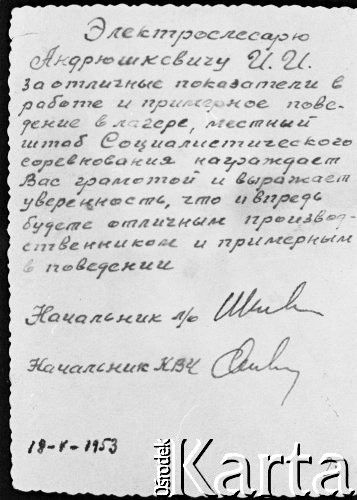 Электрослесарю
Андрюшкевичу И. И.
за отличные показатели в
работе и примерное пове-
дение в лагере, местный
штаб Социалистического
соревнования награждает
Вас грамотой и выражает
уверенность, что и впредь
будете отличным производ-
ственником и примерным
в поведении
Начальник л/о
Начальник КВЧ
18-V-1953
Ośrodek
Karta